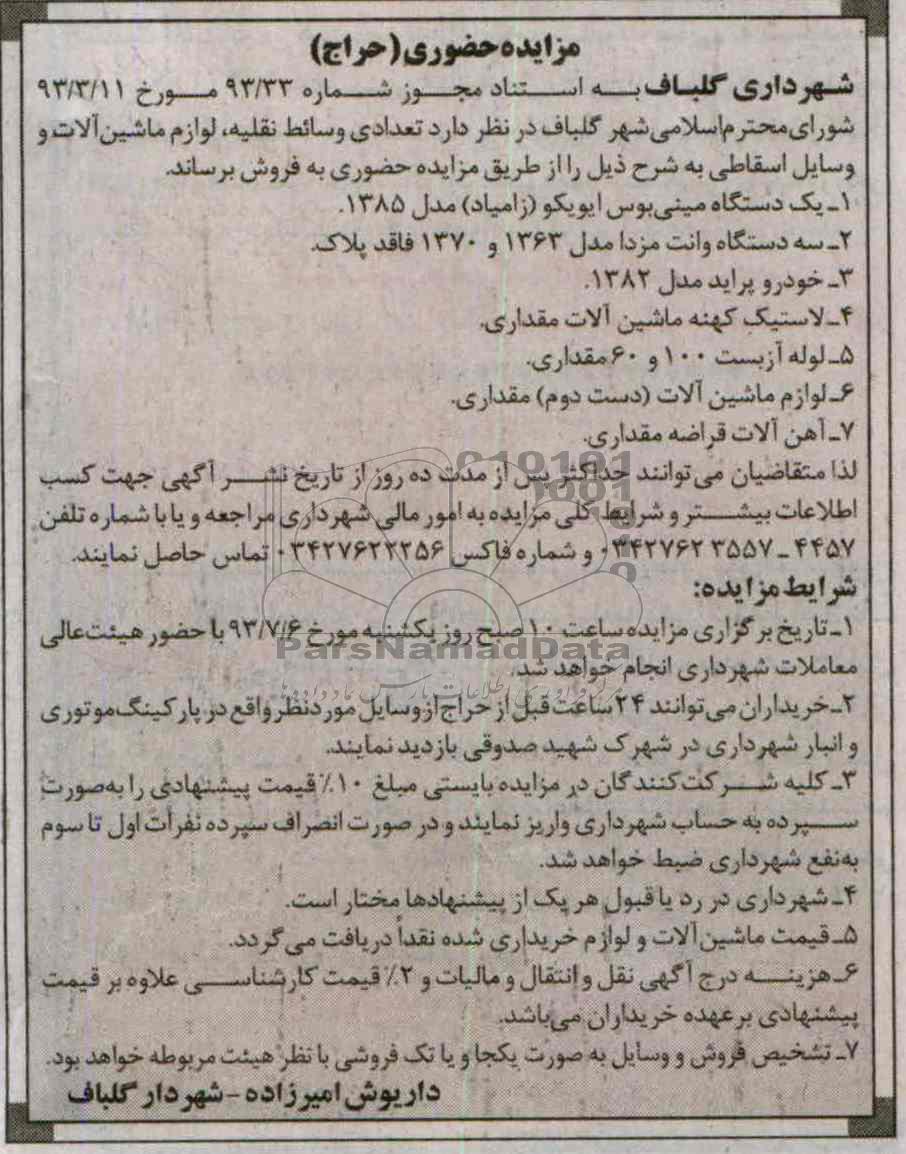 مزایده حضوری (حراج)
شهرداری گلباف به استناد مجوز شماره ۹۳/۳۳ مورخ ۹۳/۳/۱۱
شورای محترم اسلامی شهر گلباف در نظر دارد تعدادی وسائط نقلیه، لوازم ماشین‌آلات و
وسایل اسقاطی به شرح ذیل را از طریق مزایده حضوری به فروش برساند.
۱ـ یک دستگاه مینی‌بوس ایویکو (زامیاد) مدل ۱۳۸۵.
۲ـ سه دستگاه وانت مزدا مدل ۱۳۶۳ و ۱۳۷۰ فاقد پلاک.
۳ـ خودرو پراید مدل ۱۳۸۲.
۴ـ لاستیک کهنه ماشین آلات مقداری.
۵ـ لوله آزبست ۱۰۰ و ۶۰ مقداری.
۶ـ لوازم ماشین آلات (دست دوم) مقداری.
۷ـ آهن آلات قراضه مقداری.
لذا متقاضیان می‌توانند حداکثر پس از مدت ده روز از تاریخ نشر آگهی جهت کسب
اطلاعات بیشتر و شرایط کلی مزایده به امور مالی شهرداری مراجعه و یا با شماره تلفن
۴۴۵۷ ـ ۰۳۴۲۷۶۲۳۵۵۷ و شماره فاکس ۰۳۴۲۷۶۲۲۲۵۶ تماس حاصل نمایند.
شرایط مزایده:
۱ـ تاریخ برگزاری مزایده ساعت ۱۰ صبح روز یکشنبه مورخ ۹۳/۷/۶ با حضور هیئت عالی
معاملات شهرداری انجام خواهد شد.
ParsNamadData
۲ـ خریداران می‌توانند ۲۴ ساعت قبل از حراج از وسایل موردنظر واقع در پارکینگ موتوری
و انبار شهرداری در شهرک شهید صدوقی بازدید نمایند.
۳ـ کلیه شرکت‌کنندگان در مزایده بایستی مبلغ ۱۰٪ قیمت پیشنهادی را به‌صورت
سپرده به حساب شهرداری واریز نمایند و در صورت انصراف سپرده نفرات اول تا سوم
به‌نفع شهرداری ضبط خواهد شد.
۴ـ شهرداری در رد یا قبول هر یک از پیشنهادها مختار است.
۵ـ قیمت ماشین‌آلات و لوازم خریداری شده نقداً دریافت می‌گردد.
۶ـ هزینه درج آگهی نقل و انتقال و مالیات و ۲٪ قیمت کارشناسی علاوه بر قیمت
پیشنهادی برعهده خریداران می‌باشد.
۷ـ تشخیص فروش و وسایل به صورت یکجا و یا تک فروشی با نظر هیئت مربوطه خواهد بود.
داریوش امیرزاده - شهردار گلباف